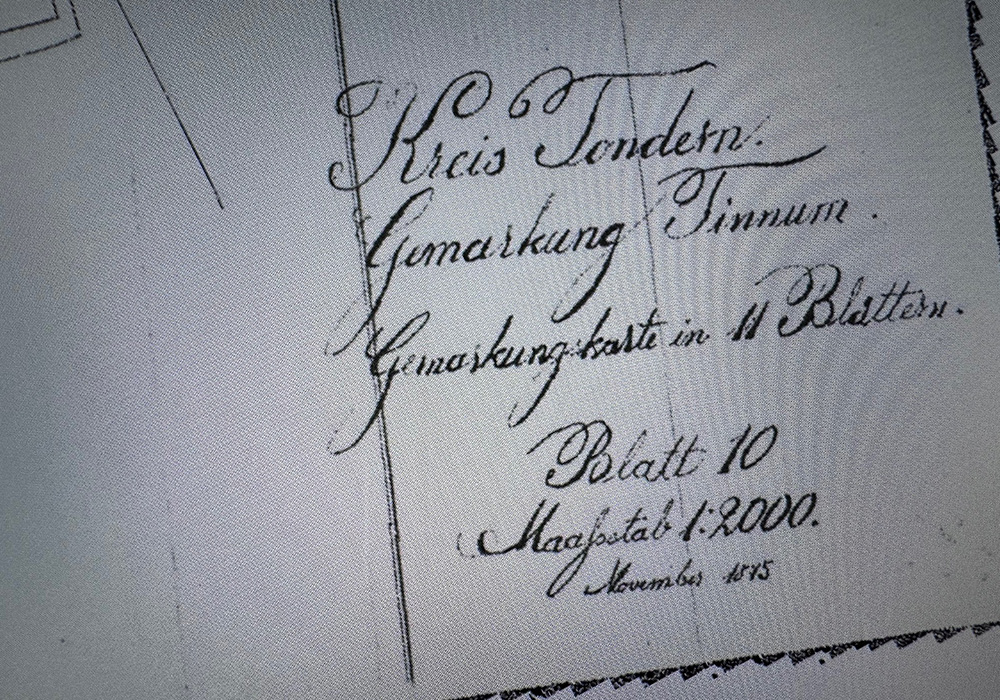 Kreis Tondern.
Gemarkung Tinnum.
Gemarkungskarte in 11 Blättern.
Blatt 10
Maaßstab 1:2000.
November 1875